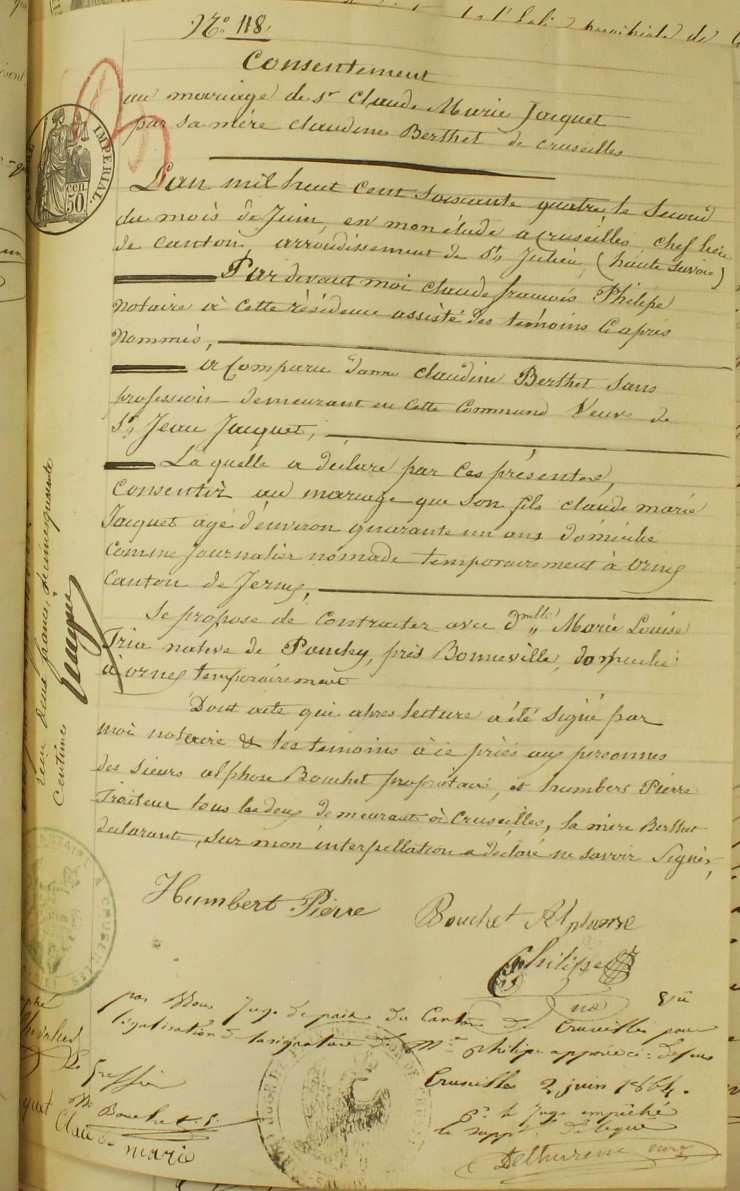 N.o 118.
Consentement
au mariage de Sr Claude Marie Jacquet
par sa mère Claudine Berthet de Cruseilles
IMPERIAL
50 cen
L'an mil huit cent soixante quatre, le second
du mois de Juin, en mon étude a Cruseilles, chef lieu
de canton, arrondissement de St Julien, (haute savoie)
Par devant moi Claude françois Philipe
notaire à cette résidence assisté des temoins Ci après
nommés,
a Comparu dame Claudine Berthet sans
profession demeurant en Cette Commune Veuve de
Sr Jean Jacquet,
La quelle a déclaré par ces présentes,
Consentir au mariage que son fils Claude marie
Jacquet agé d'environ quarante un ans domicilié
Comme journalier nomade temporairement à Orny
Canton de
Se propose de Contracter avec dmlle Marie Louise
native de près Bonneville, domiciliée
à Orny temporairement
Dont acte qui après lecture a été Signé par
moi notaire & les temoins à ce priés aux personnes
des Sieurs alphose Bouchet propriétaire, et humbert Pierre
Traiteur tous les deux demeurants à Cruseilles, la mère Berthet
déclarant, sur mon interpellation a déclaré ne savoir Signer,
Humbert Pierre
Bouchet Alphonse
Philipe
no
Vu
par Nous Juge de paix du Canton de Cruseilles pour
légalisation de la signature de Me philipe apposée ci-dessus
Cruseilles 2 juin 1864.
Pr le Juge empêché
le suppt
Le Greffier
Bouchet
Claude marie
centimes
A CRUSEILLES